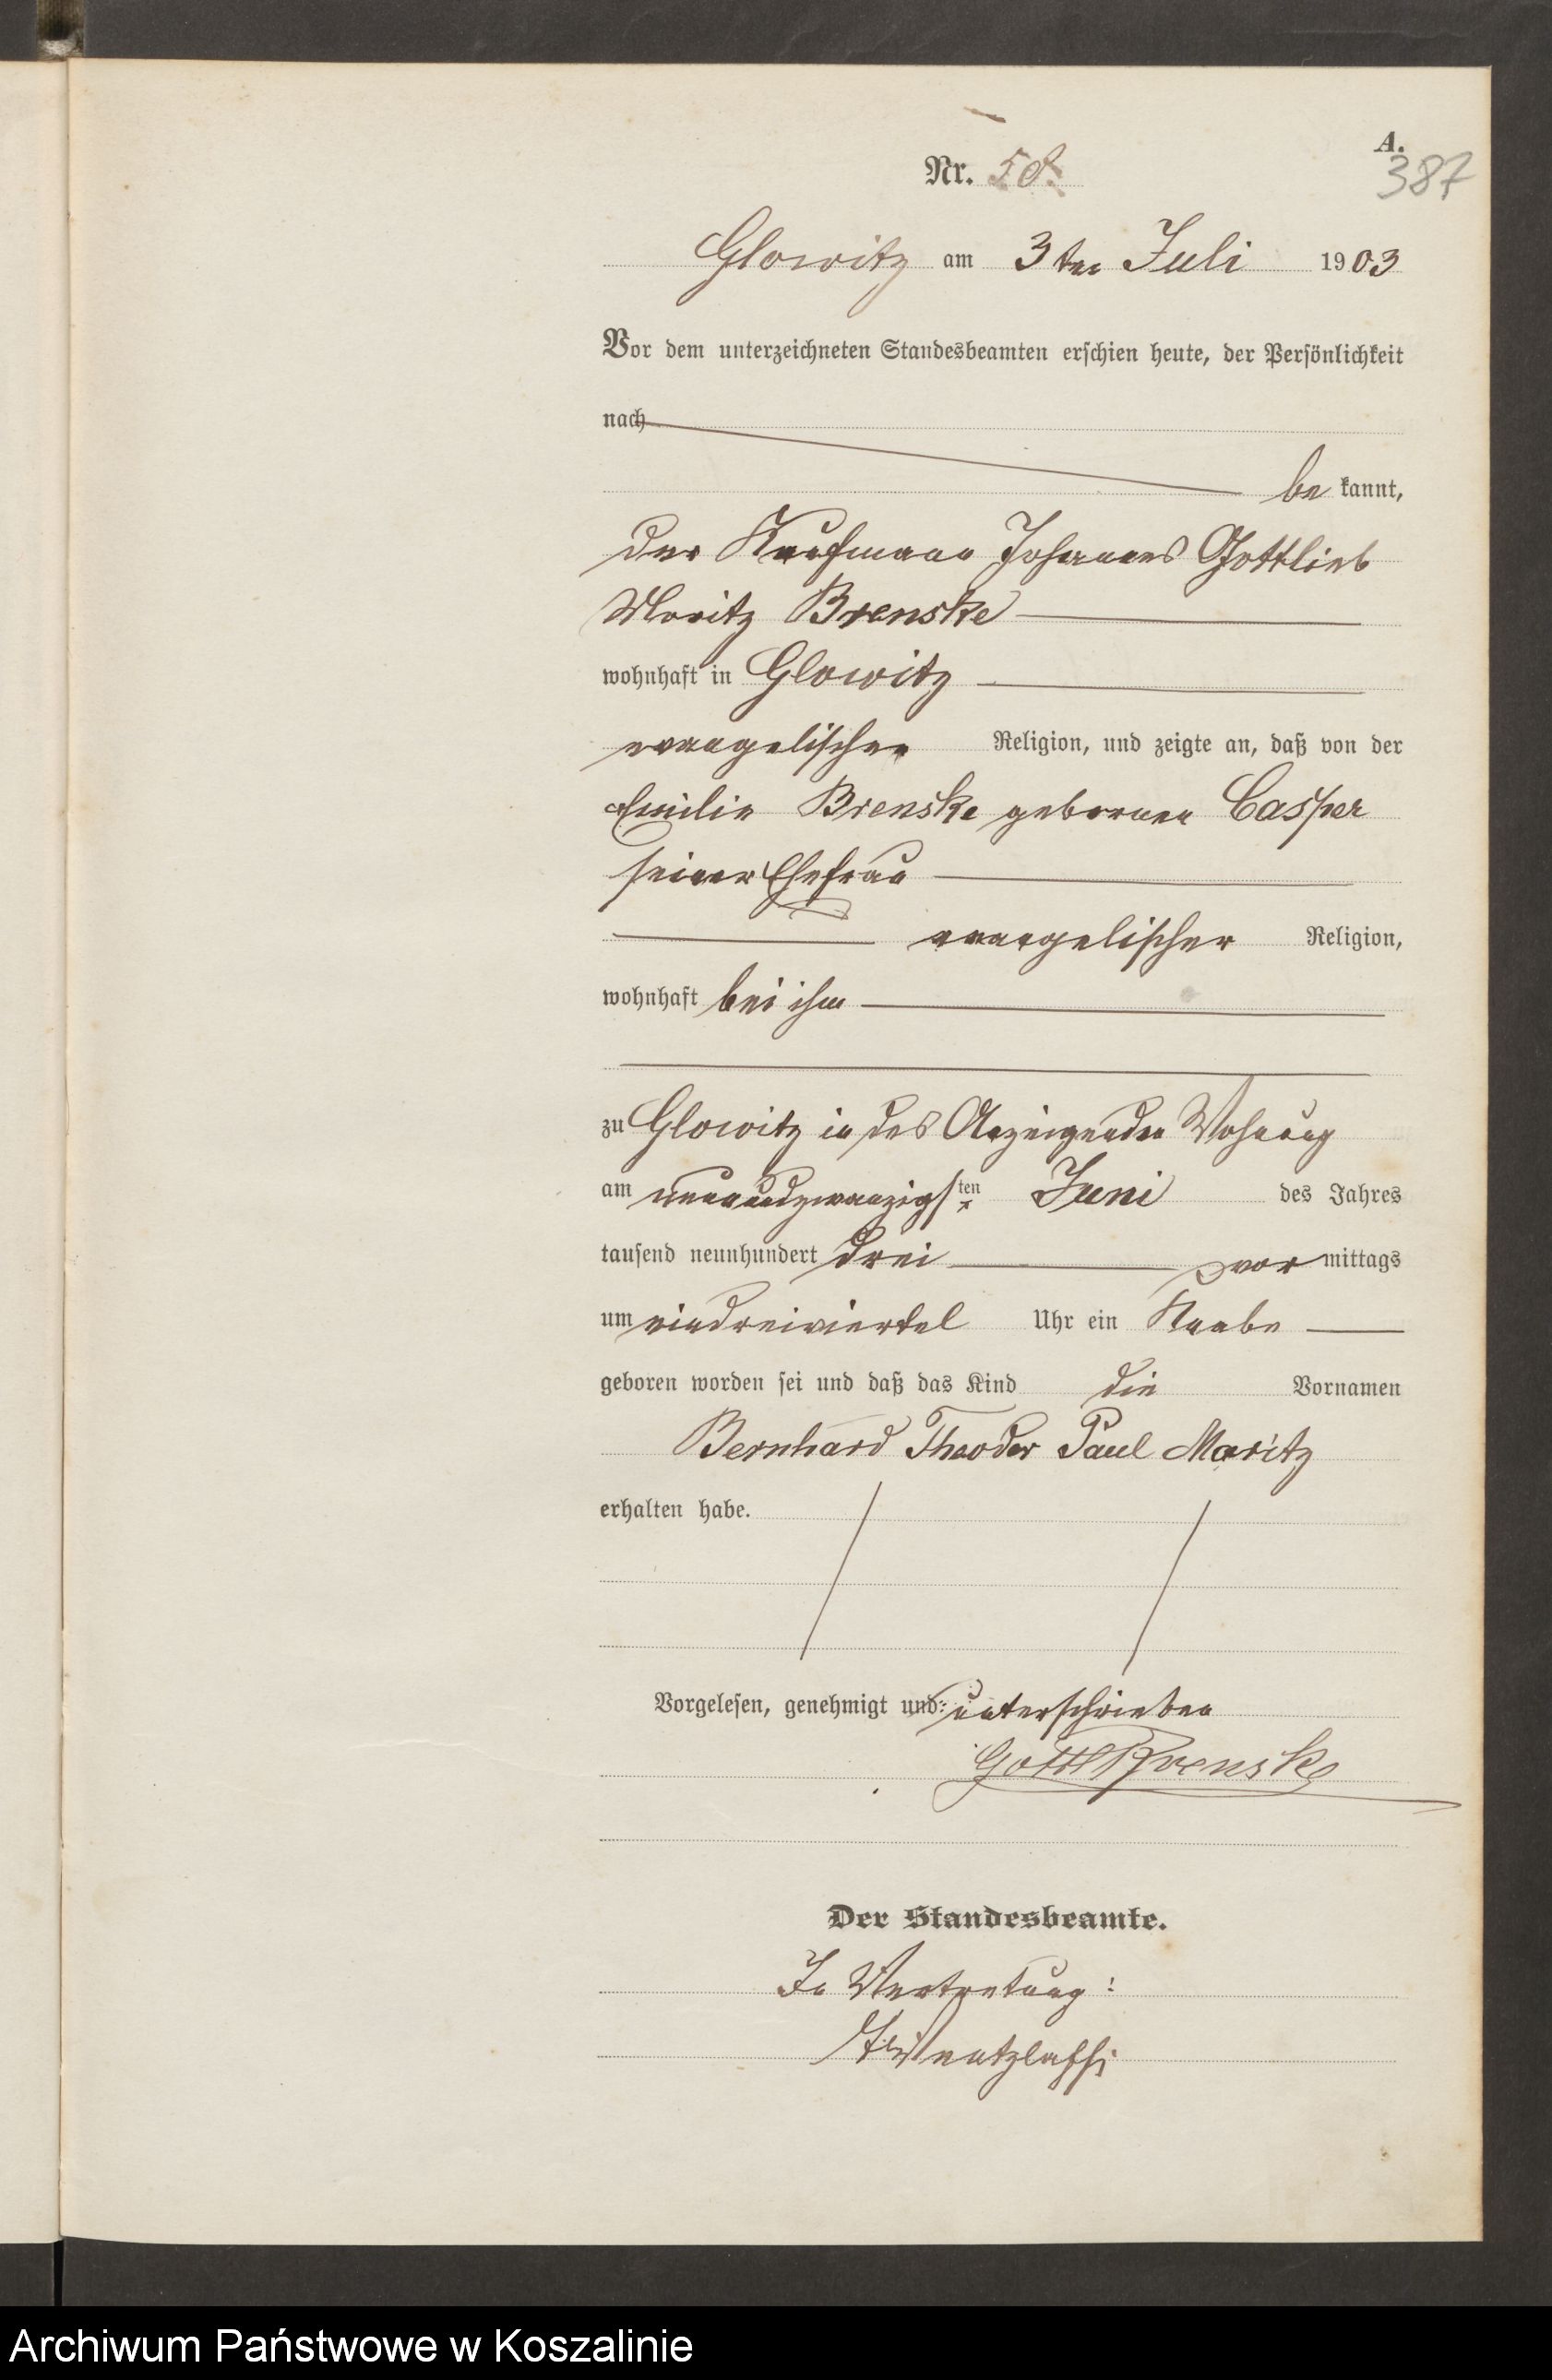 A.
387
Nr. 58.
Glowitz am 3ten Juli 1903
Vor dem unterzeichneten Standesbeamten erschien heute, der Persönlichkeit
nach
be kannt,
der Kaufmann Johannes Gottlieb
Moritz Brenske
wohnhaft in Glowitz
evangelischer Religion, und zeigte an, daß von der
Emilie Brenske geborenen Casper
seiner Ehefrau
evangelischer Religion,
wohnhaft bei ihm
zu Glowitz in des Anzeigenden Wohnung
am neunundzwanzigsten Juni des Jahres
tausend neunhundert drei vor mittags
um eindreiviertel Uhr ein Knabe
geboren worden sei und daß das Kind die Vornamen
Bernhard Theodor Paul Moritz
erhalten habe.
Vorgelesen, genehmigt und unterschrieben
Gottl Brenske
Der Standesbeamte.
In Vertretung:
Archiwum Państwowe w Koszalinie